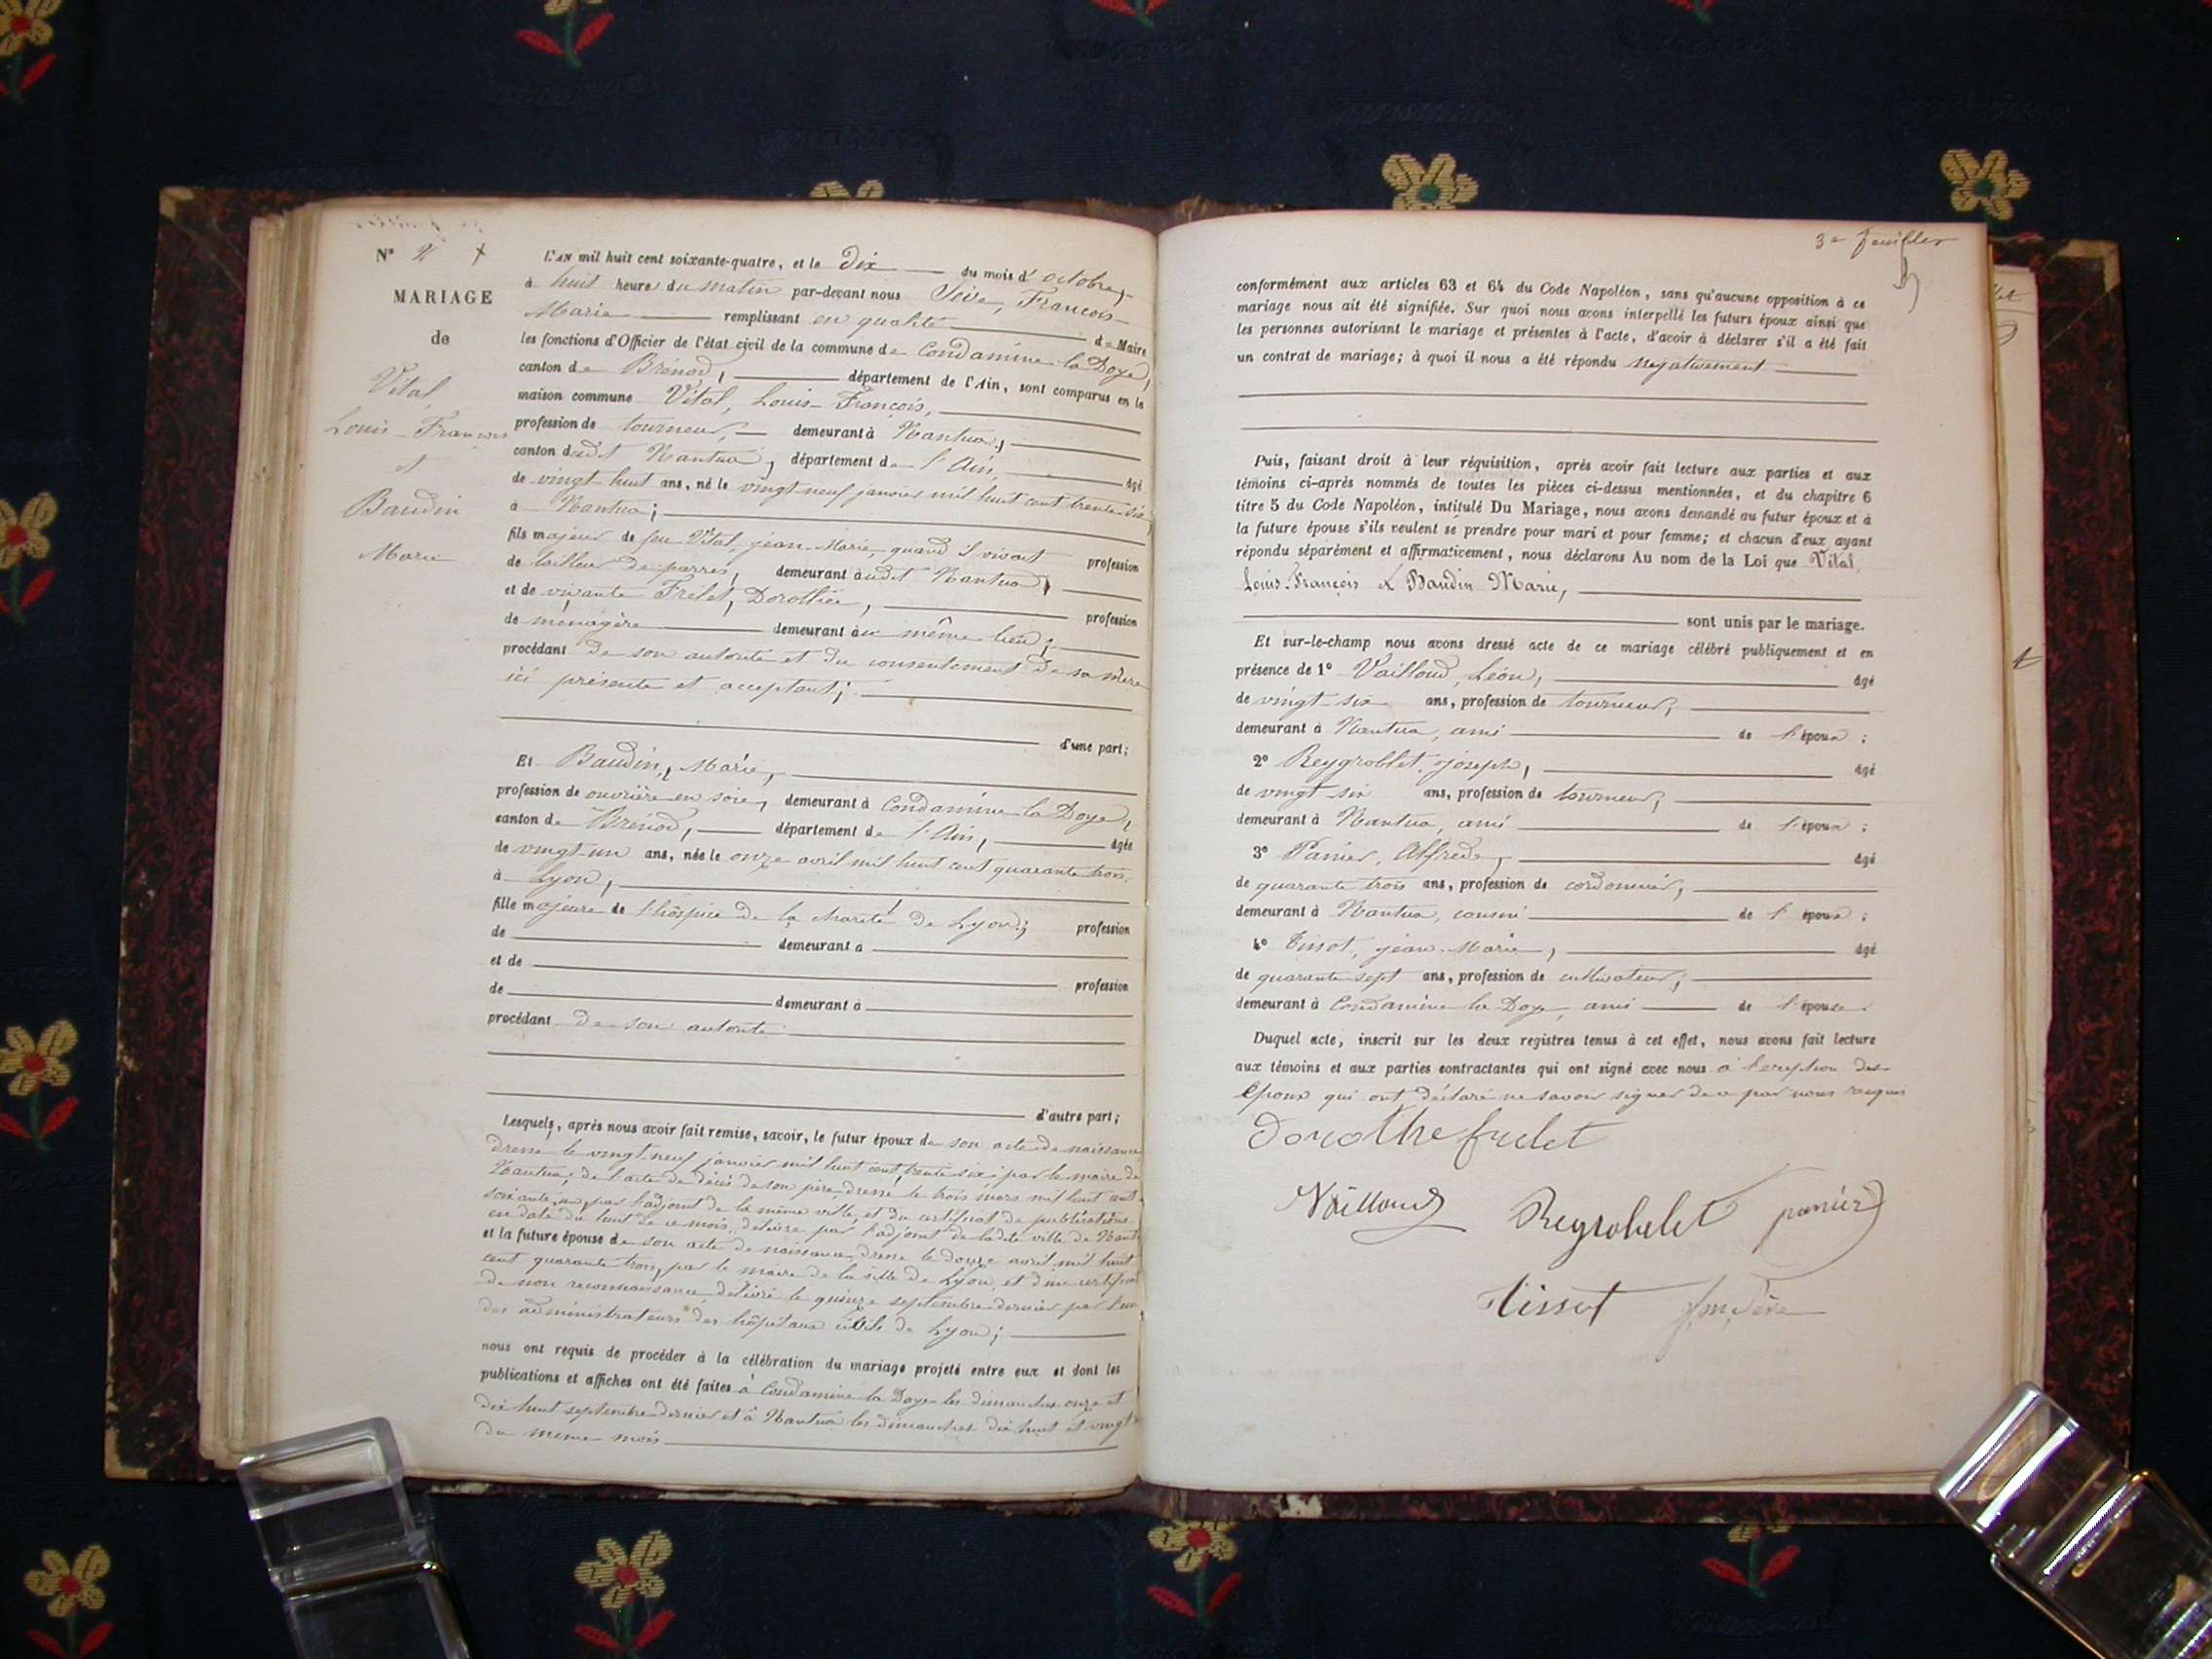 N° 4 +
MARIAGE
de
Vital
Louis-François
et
Baudin
Marie
L'AN mil huit cent soixante-quatre, et le dix du mois d'octobre,
à huit heures du matin par-devant nous Sève, François-
Marie remplissant en qualité de Maire
les fonctions d'Officier de l'état civil de la commune de Condamine-la-Doye,
canton de Brénod, département de l'Ain, sont comparus en la
maison commune Vital, Louis-François,
profession de tourneur, demeurant à Nantua,
canton dudit Nantua, département de l'Ain, âgé
de vingt-huit ans, né le vingt-neuf janvier mil huit cent trente-six,
à Nantua;
fils majeur de feu Vital, jean-Marie, quand il vivait profession
de tailleur de pierres, demeurant audit Nantua,
et de vivante Frélet, Dorothée, profession
de ménagère demeurant au même lieu;
procédant de son autorité et du consentement de sa mère
ici présente et acceptant;
d'une part;
Et Baudin, Marie,
profession de ouvrière en soie, demeurant à Condamine-la-Doye,
canton de Brénod, département de l'Ain, âgée
de vingt-un ans, née le onze avril mil huit cent quarante trois
à Lyon,
fille majeure de l'hospice de la charité de Lyon; profession
de demeurant à
et de profession
de demeurant à
procédant de son autorité
d'autre part;
Lesquels, après nous avoir fait remise, savoir, le futur époux de son acte de naissance
dressé le vingt-neuf janvier mil huit cent trente six par le maire de
Nantua; de l'acte de décès de son père, dressé le trois mars mil huit cent
soixante-un, par l'adjoint de la même ville, et du certificat de publications
en date du huit de ce mois, délivré par l'adjoint de ladite ville de
et la future épouse de son acte de naissance dressé le douze avril mil huit
cent quarante trois, par le maire de la ville de Lyon, et d'un certificat
de non reconnaissance, délivré le quinze septembre dernier par l'un
des administrateurs des hôpitaux civils de Lyon;
nous ont requis de procéder à la célébration du mariage projeté entre eux et dont les
publications et affiches ont été faites à Condamine la Doye les dimanches onze et
dix huit septembre dernier et à Nantua les dimanches dix huit et vingt
du même mois
3e feuillet
conformément aux articles 63 et 64 du Code Napoléon, sans qu'aucune opposition à ce
mariage nous ait été signifiée. Sur quoi nous avons interpellé les futurs époux ainsi que
les personnes autorisant le mariage et présentes à l'acte, d'avoir à déclarer s'il a été fait
un contrat de mariage; à quoi il nous a été répondu négativement
Puis, faisant droit à leur réquisition, après avoir fait lecture aux parties et aux
témoins ci-après nommés de toutes les pièces ci-dessus mentionnées, et du chapitre 6
titre 5 du Code Napoléon, intitulé Du Mariage, nous avons demandé au futur époux et à
la future épouse s'ils veulent se prendre pour mari et pour femme; et chacun d'eux ayant
répondu séparément et affirmativement, nous déclarons Au nom de la Loi que Vital,
Louis-François & Baudin Marie,
sont unis par le mariage.
Et sur-le-champ nous avons dressé acte de ce mariage célébré publiquement et en
présence de 1° Vailloud, Léon, âgé
de vingt-six ans, profession de tourneur,
demeurant à Nantua, ami de l'époux;
2° Reygroblet, joseph, âgé
de vingt six ans, profession de tourneur,
demeurant à Nantua, ami de l'époux;
3° Panier, Alfred, âgé
de quarante trois ans, profession de cordonnier,
demeurant à Nantua, cousin de l'époux;
4° Tissot, jean-Marie, âgé
de quarante sept ans, profession de cultivateur;
demeurant à Condamine la Doye, ami de l'épouse.
Duquel acte, inscrit sur les deux registres tenus à cet effet, nous avons fait lecture
aux témoins et aux parties contractantes qui ont signé avec nous à l'exception des
époux qui ont déclaré ne savoir signer de ce par nous requis
dorothe frelet
Vailloud Reygrobelet panier
tissot fm Sève